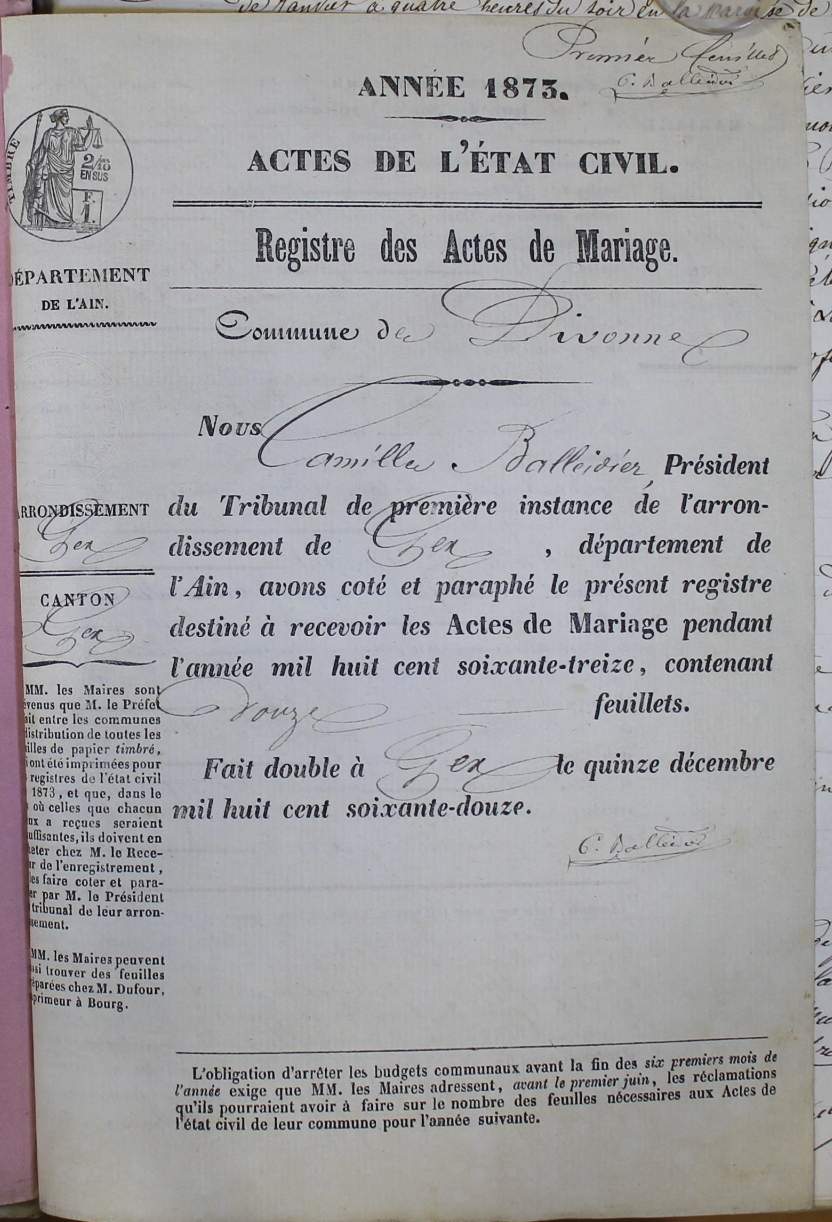 de Janvier à quatre heures du soir en la Mairie de
Premier feuillet
C. Balleidier
ANNÉE 1873.
ACTES DE L'ÉTAT CIVIL.
TIMBRE
2/10
EN SUS
F.
1.
Registre des Actes de Mariage.
DÉPARTEMENT
DE L'AIN.
Commune de Divonne
Nous Camille Balleidier, Président
du Tribunal de première instance de l'arron-
dissement de Gex, département de
l'Ain, avons coté et paraphé le présent registre
destiné à recevoir les Actes de Mariage pendant
l'année mil huit cent soixante-treize, contenant
Douze feuillets.
Fait double à Gex le quinze décembre
mil huit cent soixante-douze.
C. Balleidier
ARRONDISSEMENT
Gex
CANTON
Gex
MM. les Maires sont
évenus que M. le Préfet
ait entre les communes
distribution de toutes les
illes de papier timbré,
i ont été imprimées pour
registres de l'état civil
1873, et que, dans le
où celles que chacun
ux a reçues seraient
uffisantes, ils doivent en
heter chez M. le Rece-
ur de l'enregistrement,
les faire coter et para-
er par M. le Président
tribunal de leur arron-
ssement.
MM. les Maires peuvent
ssi trouver des feuilles
éparées chez M. Dufour,
primeur à Bourg.
L'obligation d'arrêter les budgets communaux avant la fin des six premiers mois de
l'année exige que MM. les Maires adressent, avant le premier juin, les réclamations
qu'ils pourraient avoir à faire sur le nombre des feuilles nécessaires aux Actes de
l'état civil de leur commune pour l'année suivante.